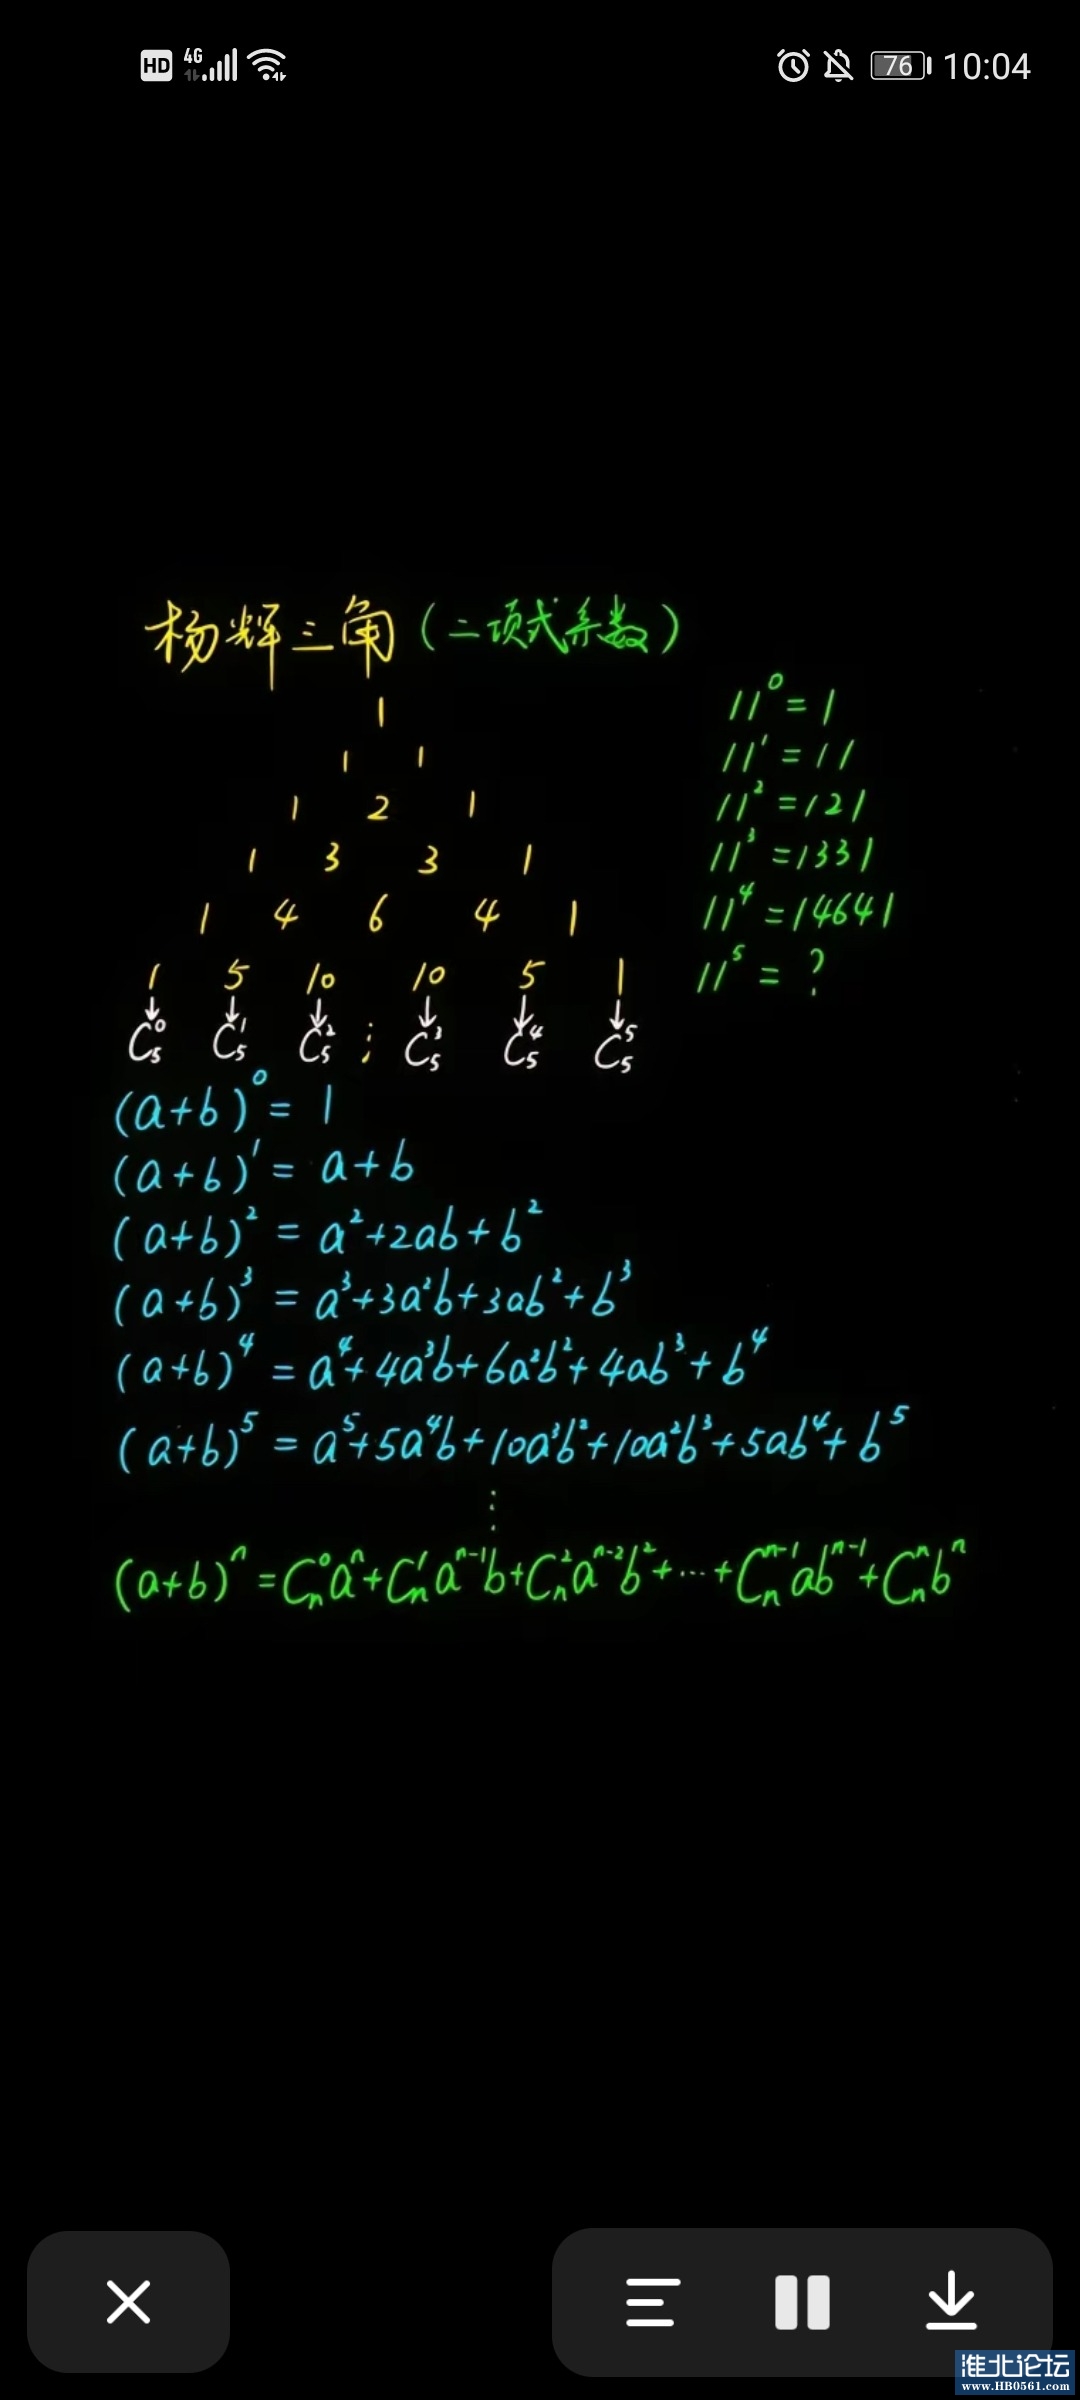 HD 4G 76 10:04
杨辉三角(二项式系数)
1
1 1
1 2 1
1 3 3 1
1 4 6 4 1
1 5 10 10 5 1
C₅⁰ C₅¹ C₅² ; C₅³ C₅⁴ C₅⁵
11⁰=1
11¹=11
11²=121
11³=1331
11⁴=14641
11⁵=?
(a+b)⁰=1
(a+b)¹=a+b
(a+b)²=a²+2ab+b²
(a+b)³=a³+3a²b+3ab²+b³
(a+b)⁴=a⁴+4a³b+6a²b²+4ab³+b⁴
(a+b)⁵=a⁵+5a⁴b+10a³b²+10a²b³+5ab⁴+b⁵
⋮
(a+b)ⁿ=Cₙ⁰aⁿ+Cₙ¹aⁿ⁻¹b+Cₙ²aⁿ⁻²b²+…+Cₙⁿ⁻¹abⁿ⁻¹+Cₙⁿbⁿ
淮北论坛
www.HB0561.com